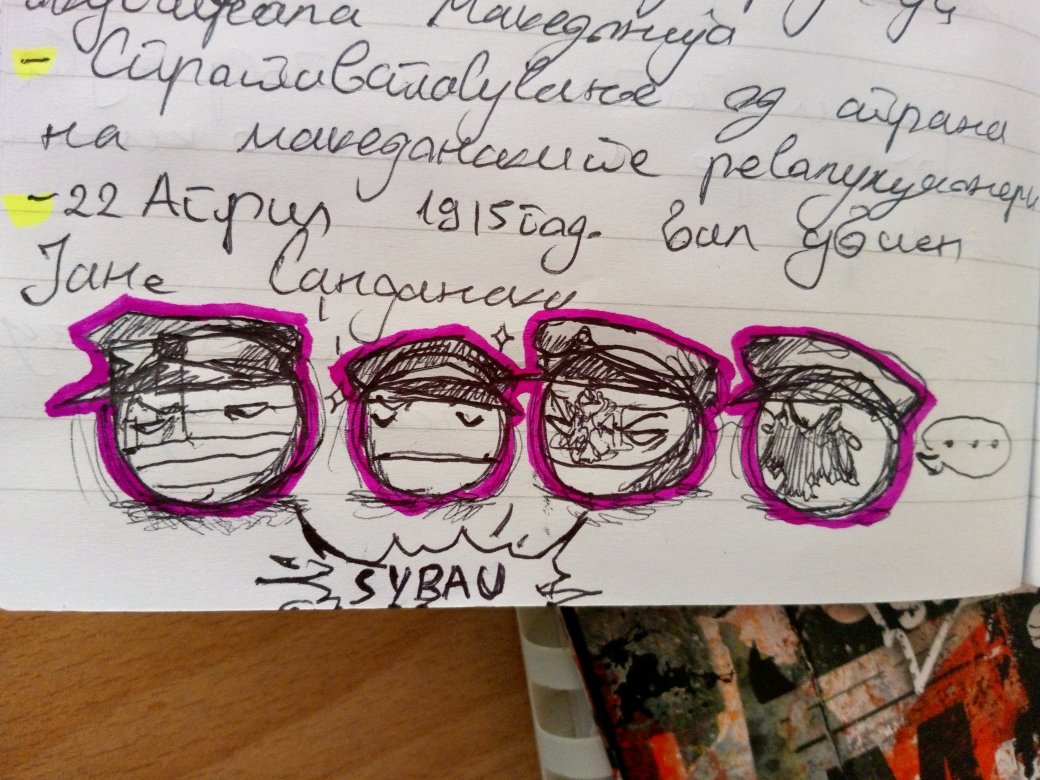 Македонија
- Спротивставување од страна
на македонските револуционери
- 22 Април 1915год. бил убиен
Јане Сандански
...
SYBAU